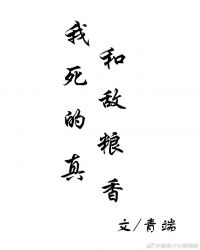 我和死敌的粮真香
文/青端